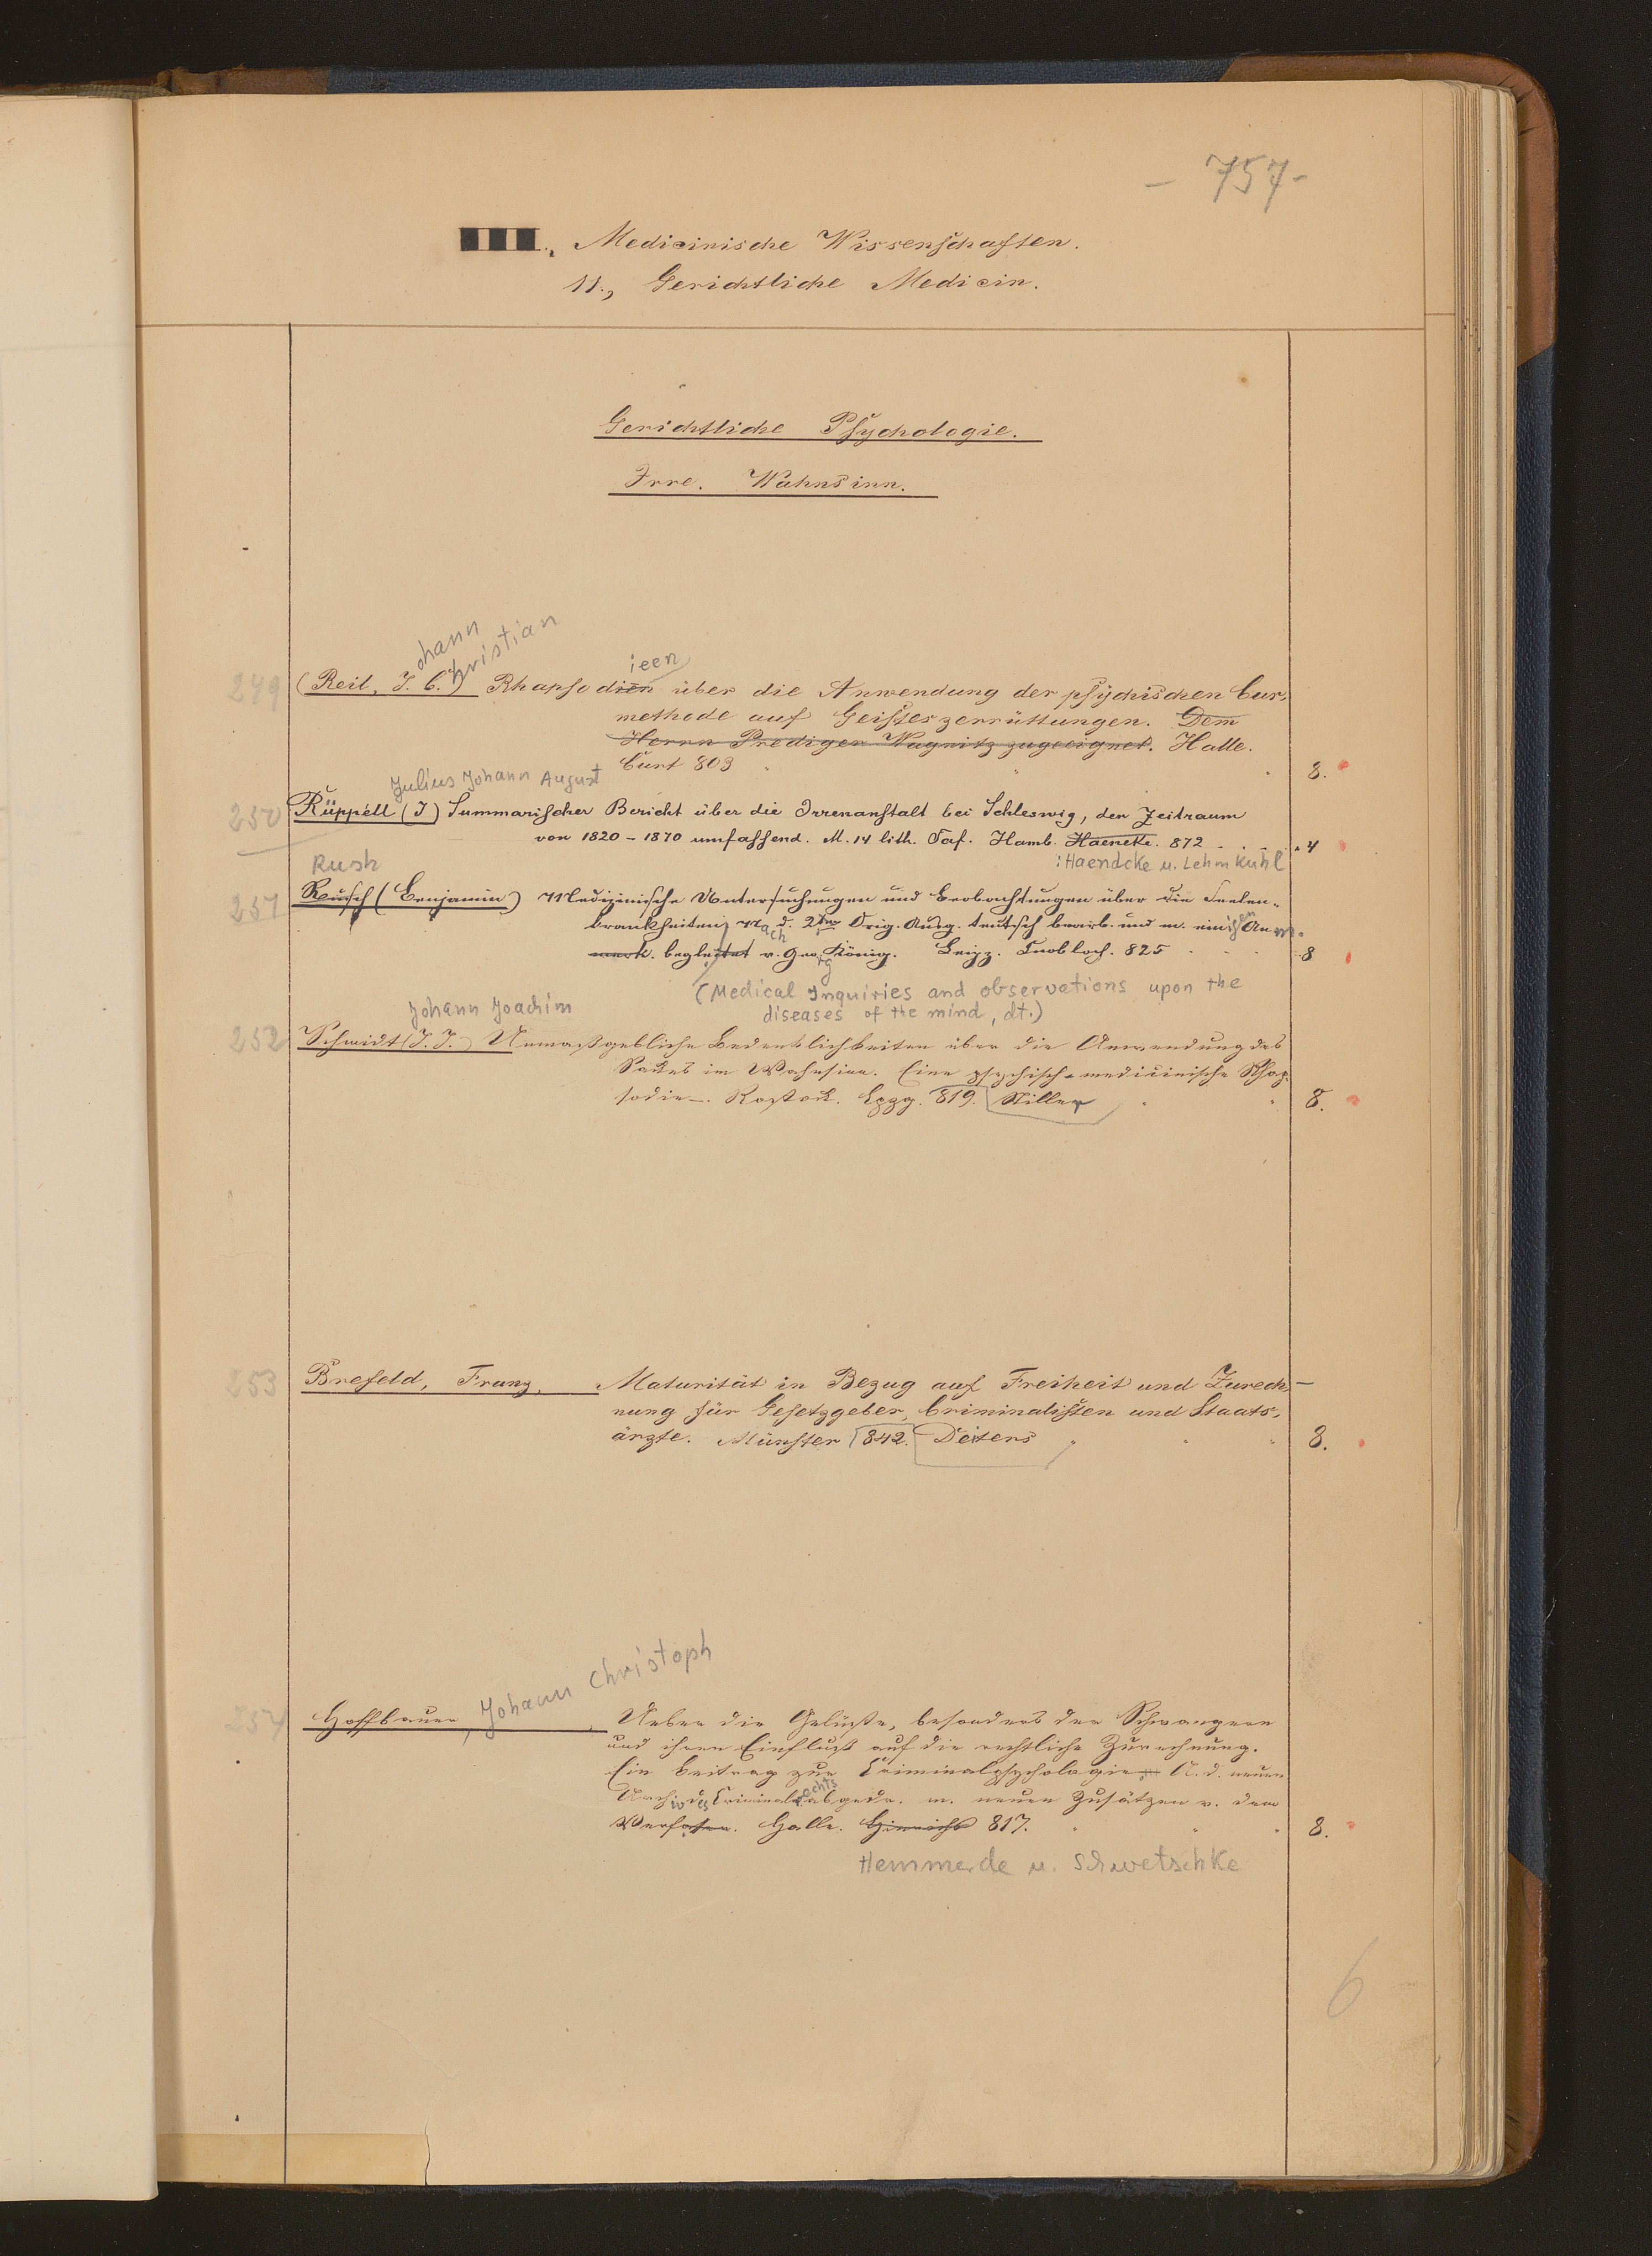 - 757 -
III., Medicinische Wissenschaften.
11., Gerichtliche Medicin.
Gerichtliche Psychologie.
Irre. Wahnsinn.
ohann
hristian
ieen
249 (Reil, J. C.) Rhapsodien über die Anwendung der psÿchischen Cur-
methode auf Geisteszerrüttungen. Dem
Herrn Prediger Wagnitz zugeeignet. Halle.
Curt 803 8.
Julius Johann August
250 Rüppell (J) Summarischer Bericht über die Irrenanstalt bei Schleswig, den Zeitraum
von 1820 - 1870 umfassend. M. 14 lith. Taf. Hamb. Haencke. 872 4
Rush : Haendcke u. Lehmkuhl
251 Rusch (Benjamin) Medizinische Untersuchungen und Beobachtungen über die Seelen-
krankheiten, nach d. 2ten Orig. Ausg. teutsch bearb. und m. einigen Anm.
merk. begleitet v. Georg König. Leipz. Cnobloch. 825 8
(Medical Inquiries and observations upon the
Johann Joachim diseases of the mind, dt.)
252 Schmidt (J. J.) Unmaßgebliche Bedenklichkeiten über die Anwendung des
Sackes im Wahnsinn. Eine psychisch-medicinische Rhap-
sodie. Rostock. Lpzg. 819. Stiller 8.
253 Brefeld, Franz, Maturität in Bezug auf Freiheit und Zurech-
nung für Gesetzgeber, Criminalisten und Staats-
ärzte. Münster 842. Deiters 8.
254 Hoffbauer, Johann Christoph, Ueber die Gelüste, besonders der Schwangern
und ihren Einfluß auf die rechtliche Zurechnung.
Ein Beitrag zur Criminalpsychologie. A. d. neuen
Archiv des Criminalrechts abgedr. m. neuen Zusätzen v. dem
Verfasser. Halle. Hinrichs 817. 8.
Hemmerde u. Schwetschke
6